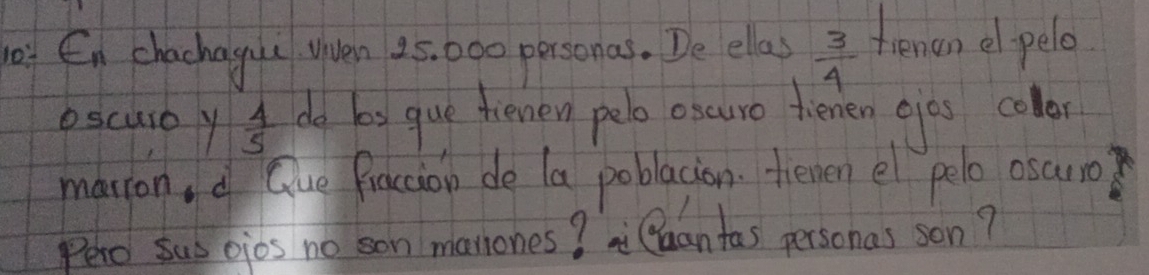 10: En chachagui viven 25.000 personas. De ellas 3/4 tienen el pelo
oscuro y 4/5 de los que tienen pelo oscuro tienen ojos color
marron. ¿ Que fracción de la poblacion. tienen el pelo oscuro?
Pero sus ojos no son marrones? ¿Cuántas personas son?